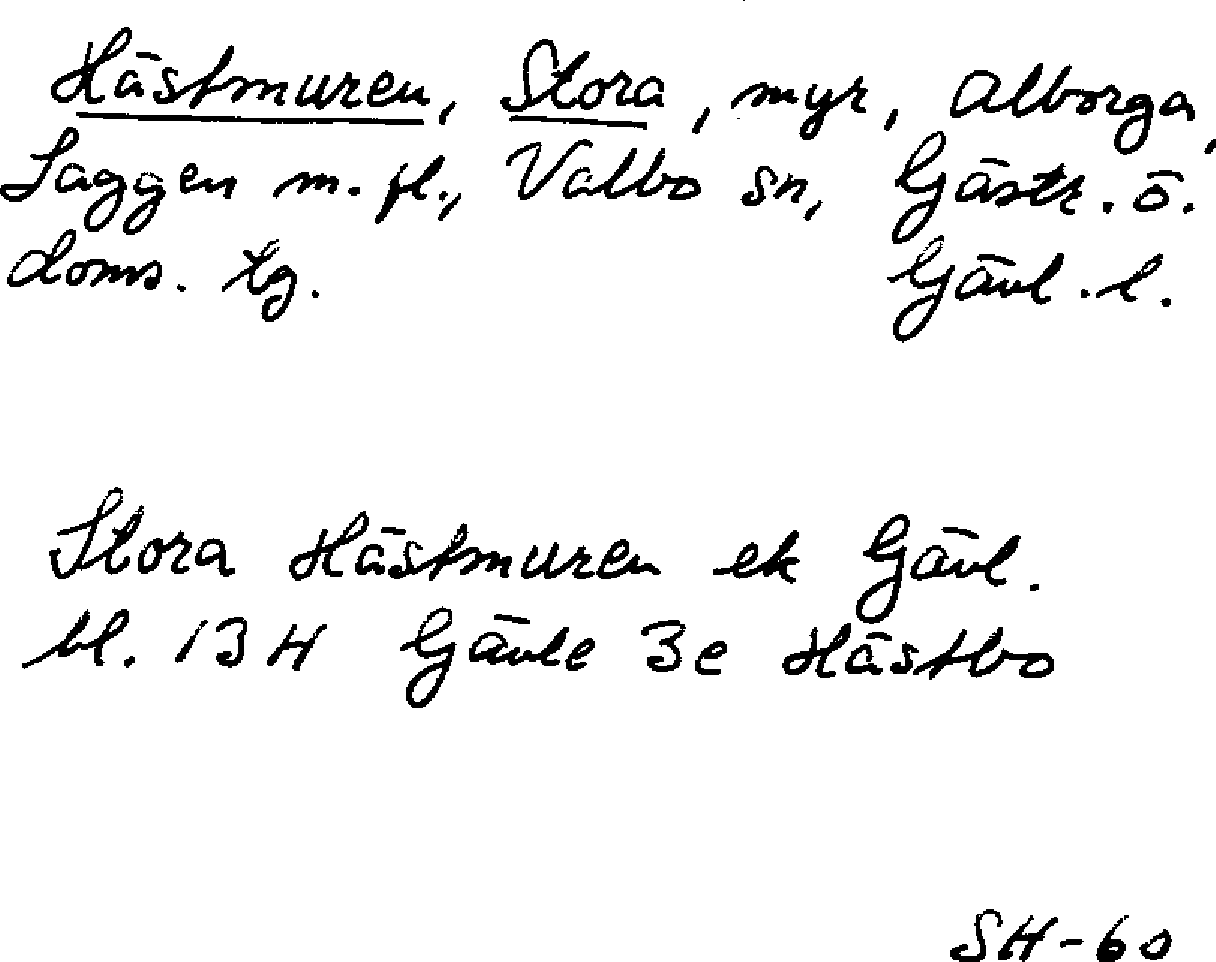 Hästmuren, Stora, myr, Alborga,
Laggen m. fl., Valbo sn, Gästr. ö.
doms. tg. Gävl. l.
Stora Hästmuren ek Gävl.
bl. 13 H Gävle 3e Hästbo
SH-60